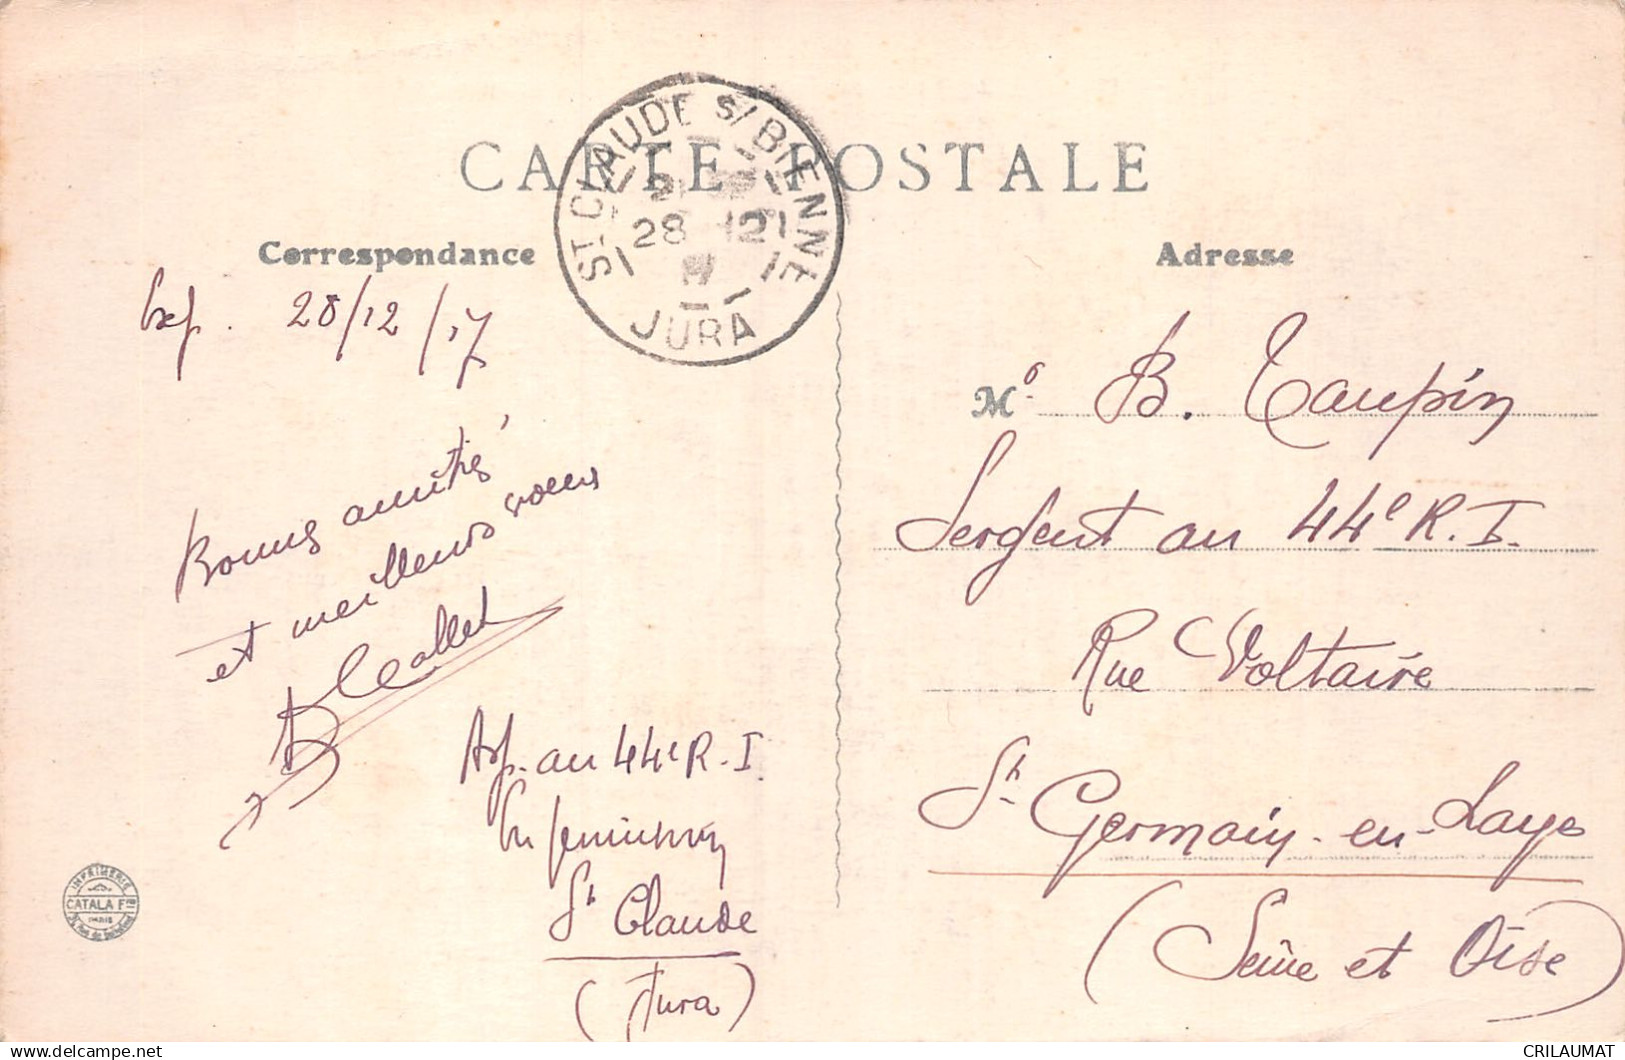 CARTE POSTALE
ST-CLAUDE S/ BIENNE
28 -12
JURA
Correspondance
Adresse
Exp. 28/12/17
Bonnes amitiés
et meilleurs voeux
au 44e R.I.
St Claude
(Jura)
Mr B. Taupin
Sergent au 44e R.I.
Rue Voltaire
St Germain-en-Laye
(Seine et Oise)
IMPRIMERIE
CATALA Fres
PARIS
CRILAUMAT